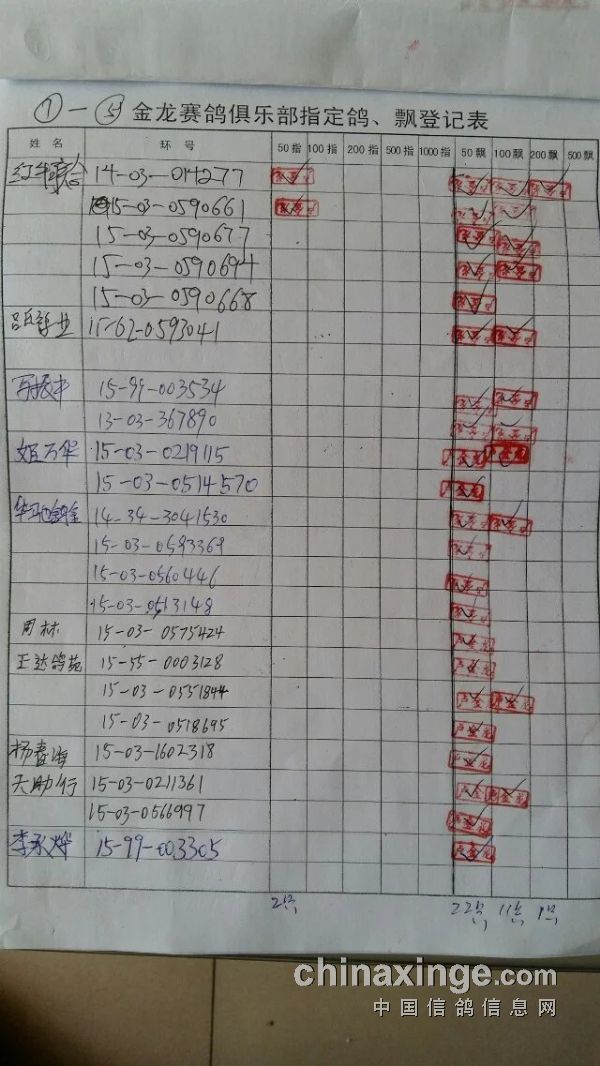 ① 一 ⑤ 金龙赛鸽俱乐部指定鸽、飘登记表
姓名 环号 50指 100指 200指 500指 1000指 50飘 100飘 200飘 500飘
14-03-014277
15-03-0590661
15-03-0590677
15-03-0590694
15-03-0590668
15-62-0593041
15-99-003534
13-03-367890
姬万华 15-03-0219115
15-03-0514570
14-34-3041530
15-03-0593369
15-03-0560446
15-03-0513148
周林 15-03-0575424
王达鸽苑 15-55-0003128
15-03-0551844
15-03-0518695
杨春海 15-03-1602318
天助行 15-03-0211361
15-03-0566997
李承烨 15-99-003305
2只 22只 11只 1只
chinaxinge.com
中国信鸽信息网